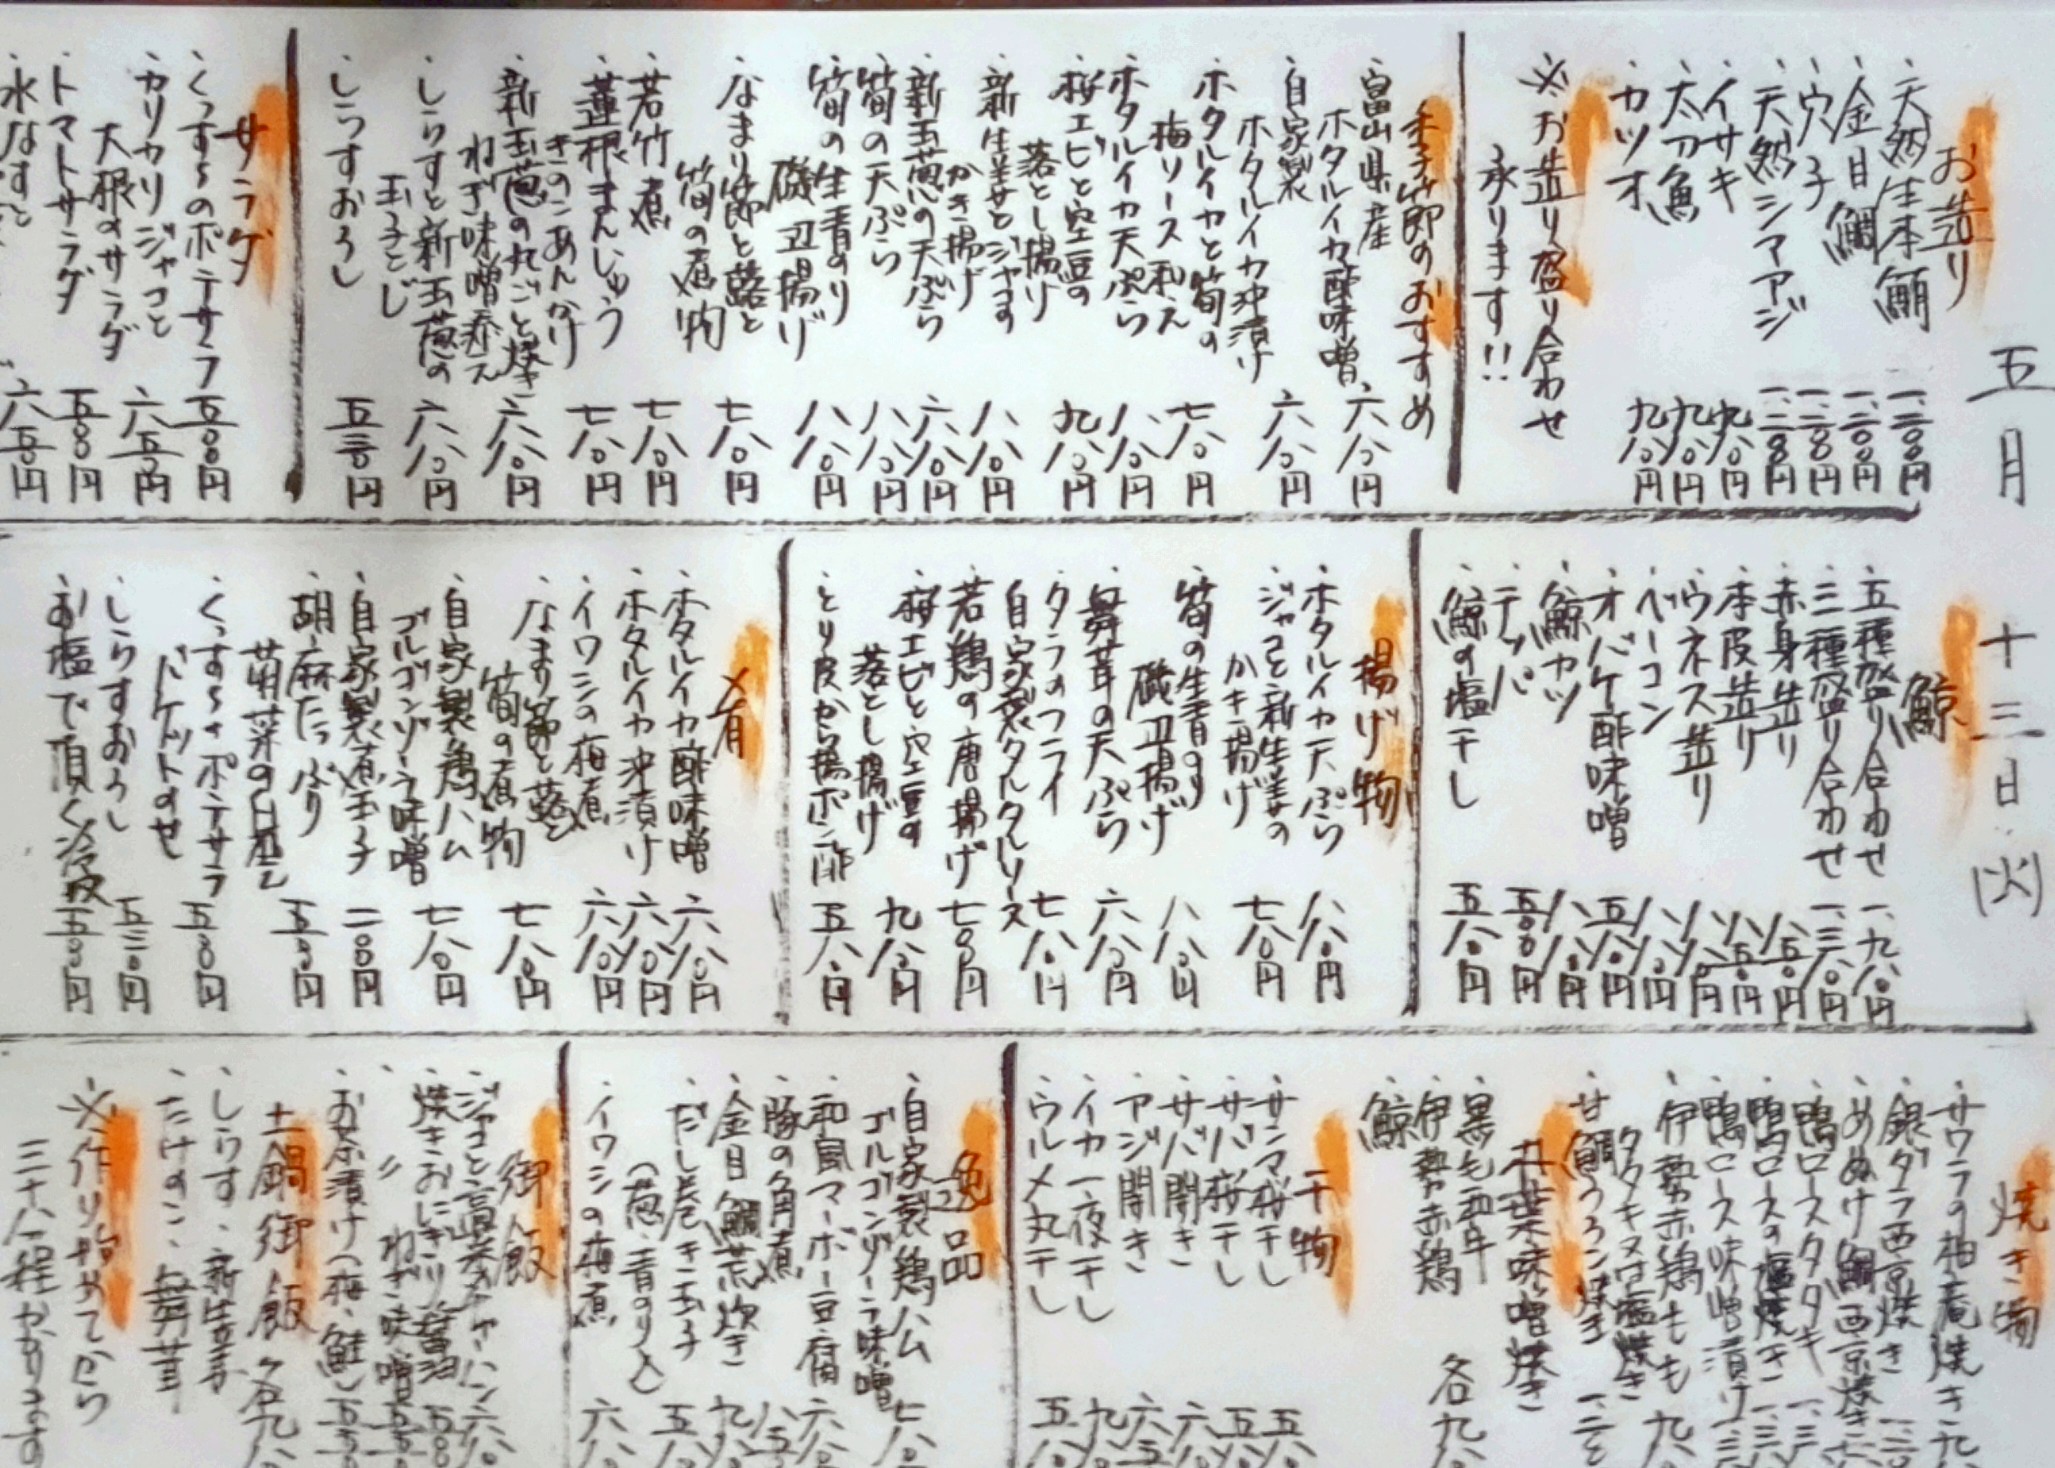 五月 十三日(火)
お造り
・天然生本鮪 一、二〇〇円
・金目鯛 一、二〇〇円
・穴子 一、二〇〇円
・天然シマアジ 一、二〇〇円
・イサキ 九八〇円
・太刀魚 九八〇円
・カツオ 九八〇円
※お造り盛り合わせ
承ります!!
季節のおすすめ
・富山県産
ホタルイカ酢味噌 六八〇円
・自家製
ホタルイカ沖漬け 六八〇円
・ホタルイカと筍の
梅ソース和え 七八〇円
・ホタルイカ天ぷら 八八〇円
・桜エビと空豆の
落とし揚げ 九八〇円
・新生姜とジャコの
かき揚げ 八八〇円
・新玉葱の天ぷら 六八〇円
・筍の天ぷら 八八〇円
・筍の生青のり
磯辺揚げ 八八〇円
・なまり節と蕗と
筍の煮物 七八〇円
・若竹煮 七八〇円
・蓮根まんじゅう
きのこあんかけ 七八〇円
・新玉葱の丸ごと焼き
ねぎ味噌添え 六八〇円
・しらすと新玉葱の
玉子とじ 六八〇円
・しらすおろし 五三〇円
サラダ
・くっすらのポテサラ 五〇〇円
・カリカリジャコと
大根のサラダ 六五〇円
・トマトサラダ 五〇〇円
・水なすと 六五〇円
鯨
・五種盛り合わせ 一、九八〇円
・三種盛り合わせ 一、三八〇円
・赤身造り 八五〇円
・本皮造り 八五〇円
・ウネス造り 八八〇円
・ベーコン 八八〇円
・オバケ酢味噌 五八〇円
・鯨カツ 八八〇円
・テッパ 五〇〇円
・鯨の塩干し 五八〇円
揚げ物
・ホタルイカ天ぷら 八八〇円
・ジャコと新生姜の
かき揚げ 七八〇円
・筍の生青のり
磯辺揚げ 八八〇円
・舞茸の天ぷら 六八〇円
・タラのフライ
自家製タルタルソース 七八〇円
・若鶏の唐揚げ 七〇〇円
・桜エビと空豆の
落とし揚げ 九八〇円
・とり皮から揚ポン酢 五八〇円
肴
・ホタルイカ酢味噌 六八〇円
・ホタルイカ沖漬け 六八〇円
・イワシの梅煮 六八〇円
・なまり節と蕗と
筍の煮物 七八〇円
・自家製鶏ハム
ゴルゴンゾーラ味噌 七八〇円
・自家製煮玉子 二〇〇円
・胡麻たっぷり
菊菜の白和え 五〇〇円
・くっすらポテサラ
バケットのせ 五〇〇円
・しらすおろし 五三〇円
・お塩で頂く冷奴 五〇〇円
焼き物
・サワラの柚庵焼き 九八
・銀ダラ西京焼き 一、三〇
・めぬけ鯛西京焼き
・鴨ロースタタキ 一、三
・鴨ロースの塩焼き 一、三
・鴨ロース味噌漬け 一、三
・伊勢赤鶏もも
タタキ又は塩焼き 九八
・甘鯛うろこ焼き 一、二
朴葉味噌焼き
・黒毛和牛
・伊勢赤鶏
・鯨 各九八
干物
・サンマ桜干し 五八
・サバ桜干し 五八
・サバ開き 六八
・アジ開き 六五
・イカ一夜干し 九八
・ウルメ丸干し 五八
逸品
・自家製鶏ハム
ゴルゴンゾーラ味噌 七八
・和風マーボー豆腐 六八
・豚の角煮 八五
・金目鯛荒炊き 九八
・だし巻き玉子
(葱・青のり入) 五八
・イワシの梅煮 六八
御飯
・ジャコと高菜チャーハン 六八
・焼きおにぎり醤油 五〇
・〃 ねぎ味噌 五五
・お茶漬け(梅・鮭) 五五
土鍋御飯 各九八
・しらす、新生姜
・たけのこ、舞茸
※作り始めてから
三十分程かかります